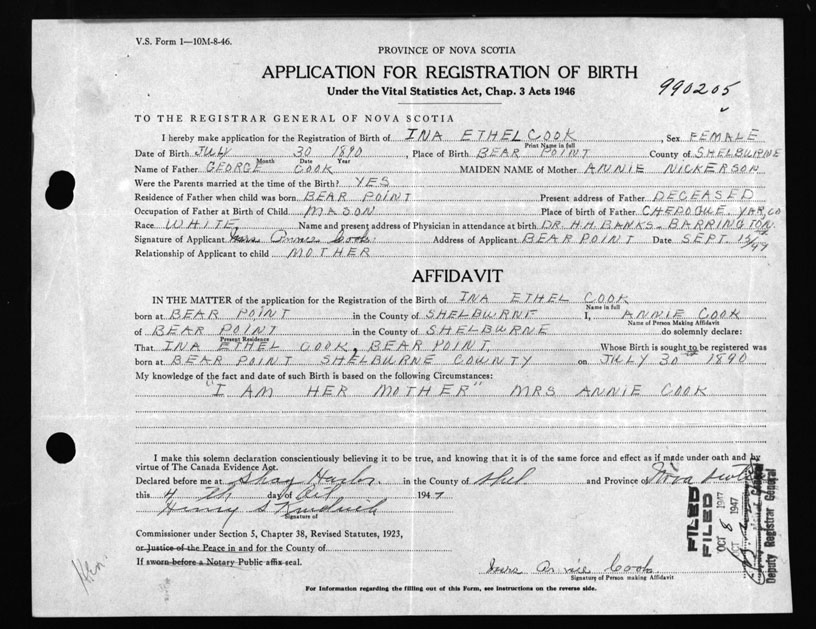 V.S. Form 1—10M-8-46.
PROVINCE OF NOVA SCOTIA
APPLICATION FOR REGISTRATION OF BIRTH
990205
Under the Vital Statistics Act, Chap. 3 Acts 1946
TO THE REGISTRAR GENERAL OF NOVA SCOTIA
I hereby make application for the Registration of Birth of INA ETHEL COOK, Sex FEMALE
Print Name in full
Date of Birth JULY 30 1890, Place of Birth BEAR POINT County of SHELBURNE
Month Date Year
Name of Father GEORGE COOK MAIDEN NAME of Mother ANNIE NICKERSON
Were the Parents married at the time of the Birth? YES
Residence of Father when child was born BEAR POINT Present address of Father DECEASED
Occupation of Father at Birth of Child MASON Place of birth of Father CHEBOGUE YAR. CO
Race WHITE Name and present address of Physician in attendance at birth DR. H.H. BANKS. BARRINGTON.
Signature of Applicant Mrs Annie Cook Address of Applicant BEAR POINT Date SEPT. 13th/47
Relationship of Applicant to child MOTHER
AFFIDAVIT
IN THE MATTER of the application for the Registration of the Birth of INA ETHEL COOK
Name in full
born at BEAR POINT in the County of SHELBURNE I, ANNIE COOK
Name of Person Making Affidavit
of BEAR POINT in the County of SHELBURNE do solemnly declare:
Present Residence
That INA ETHEL COOK, BEAR POINT, Whose Birth is sought to be registered was
born at BEAR POINT SHELBURNE COUNTY on JULY 30th 1890
My knowledge of the fact and date of such Birth is based on the following Circumstances:
"I AM HER MOTHER" MRS ANNIE COOK
I make this solemn declaration conscientiously believing it to be true, and knowing that it is of the same force and effect as if made under oath and by
virtue of The Canada Evidence Act.
Declared before me at Shag Harbor in the County of Shel and Province of Nova Scotia
this 4 Th day of Oct 1947
Henry S
Signature of
Commissioner under Section 5, Chapter 38, Revised Statutes, 1923,
or Justice of the Peace in and for the County of
If sworn before a Notary Public affix seal.
Mrs Annie Cook
Signature of Person making Affidavit
For Information regarding the filling out of this Form, see instructions on the reverse side.
FILED
FILED
OCT 8 1947
OCT 1947
Deputy Registrar General